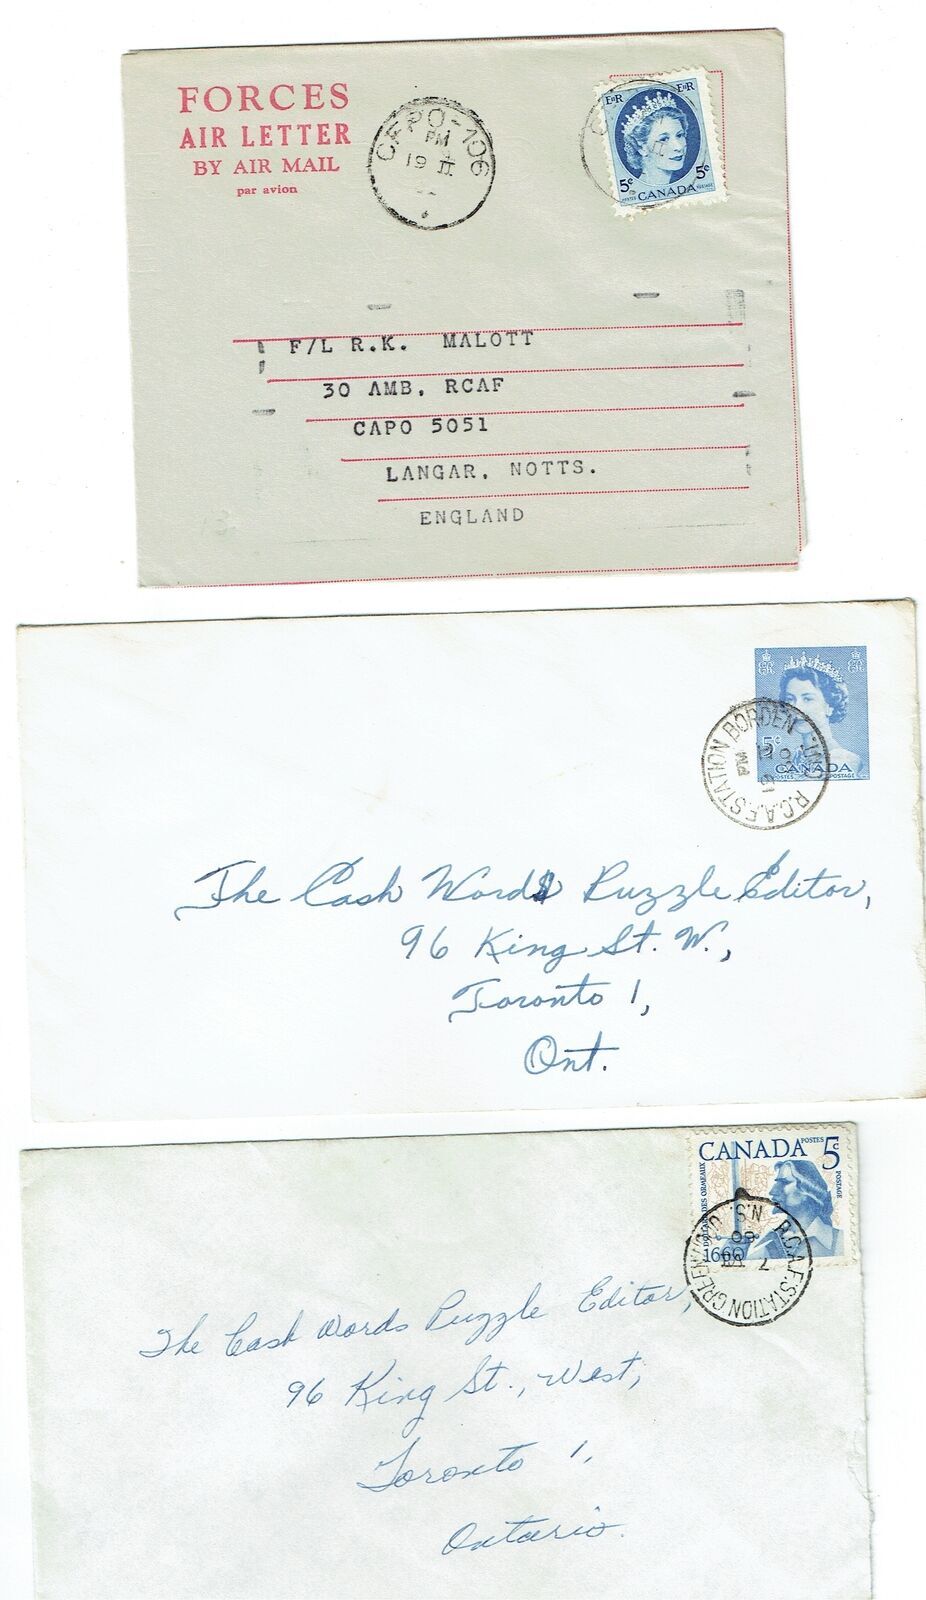 FORCES
AIR LETTER
BY AIR MAIL
par avion
CFPO-106
PM
19 II
EIIR EIIR
5¢ 5¢
POSTES CANADA POSTAGE
F/L R.K. MALOTT
30 AMB, RCAF
CAPO 5051
LANGAR, NOTTS.
ENGLAND
EIIR EIIR
5¢
CANADA
POSTES POSTAGE
R.C.A.F. STATION BORDEN ONT.
PM
The Cash Words Puzzle Editor,
96 King St. W.,
Toronto 1,
Ont.
CANADA POSTES 5¢
POSTAGE
DOLLARD DES ORMEAUX
1660
R.C.A.F. STATION GREENWOOD N.S.
60
The Cash Words Puzzle Editor,
96 King St., West,
Toronto 1,
Ontario.